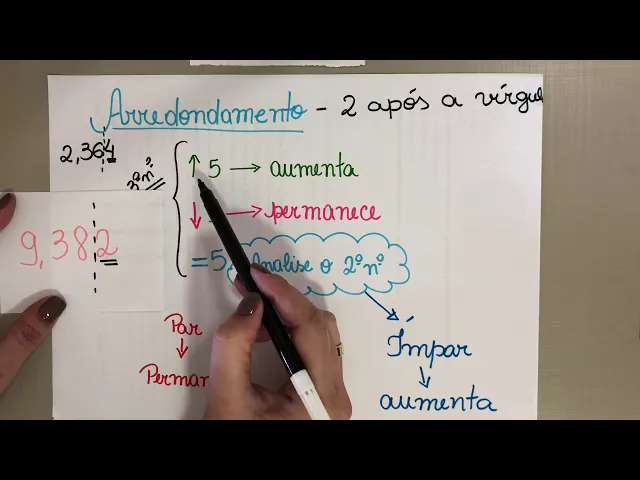 Arredondamento - 2 após a vírgu
2,364
3º nº
↑ 5 → aumenta
↓ → permanece
= 5 Analise o 2º nº
9,382
Par
↓
Perman
Ímpar
↓
aumenta